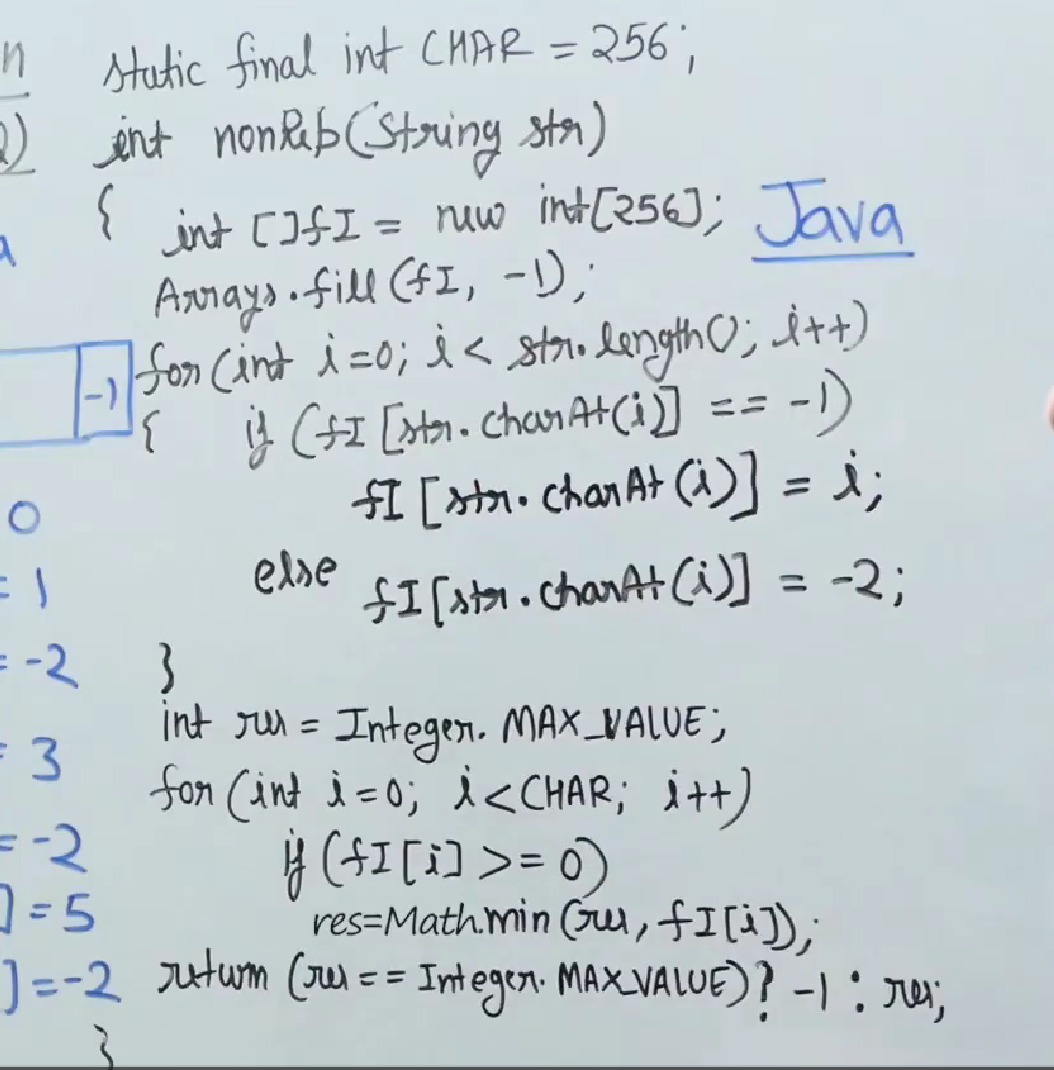 n static final int CHAR = 256;
) int nonRep(String str)
{ int []fI = new int[256]; Java
Arrays.fill(fI, -1);
-1 for (int i=0; i< str.length(); i++)
{ if (fI [str.charAt(i)] == -1)
0 fI [str.charAt(i)] = i;
= 1 else fI[str.charAt(i)] = -2;
= -2 }
int res = Integer.MAX_VALUE;
= 3 for (int i=0; i<CHAR; i++)
= -2 if (fI[i] >= 0)
] = 5 res=Math.min(res, fI[i]);
] = -2 return (res == Integer.MAX_VALUE)? -1 : res;
}